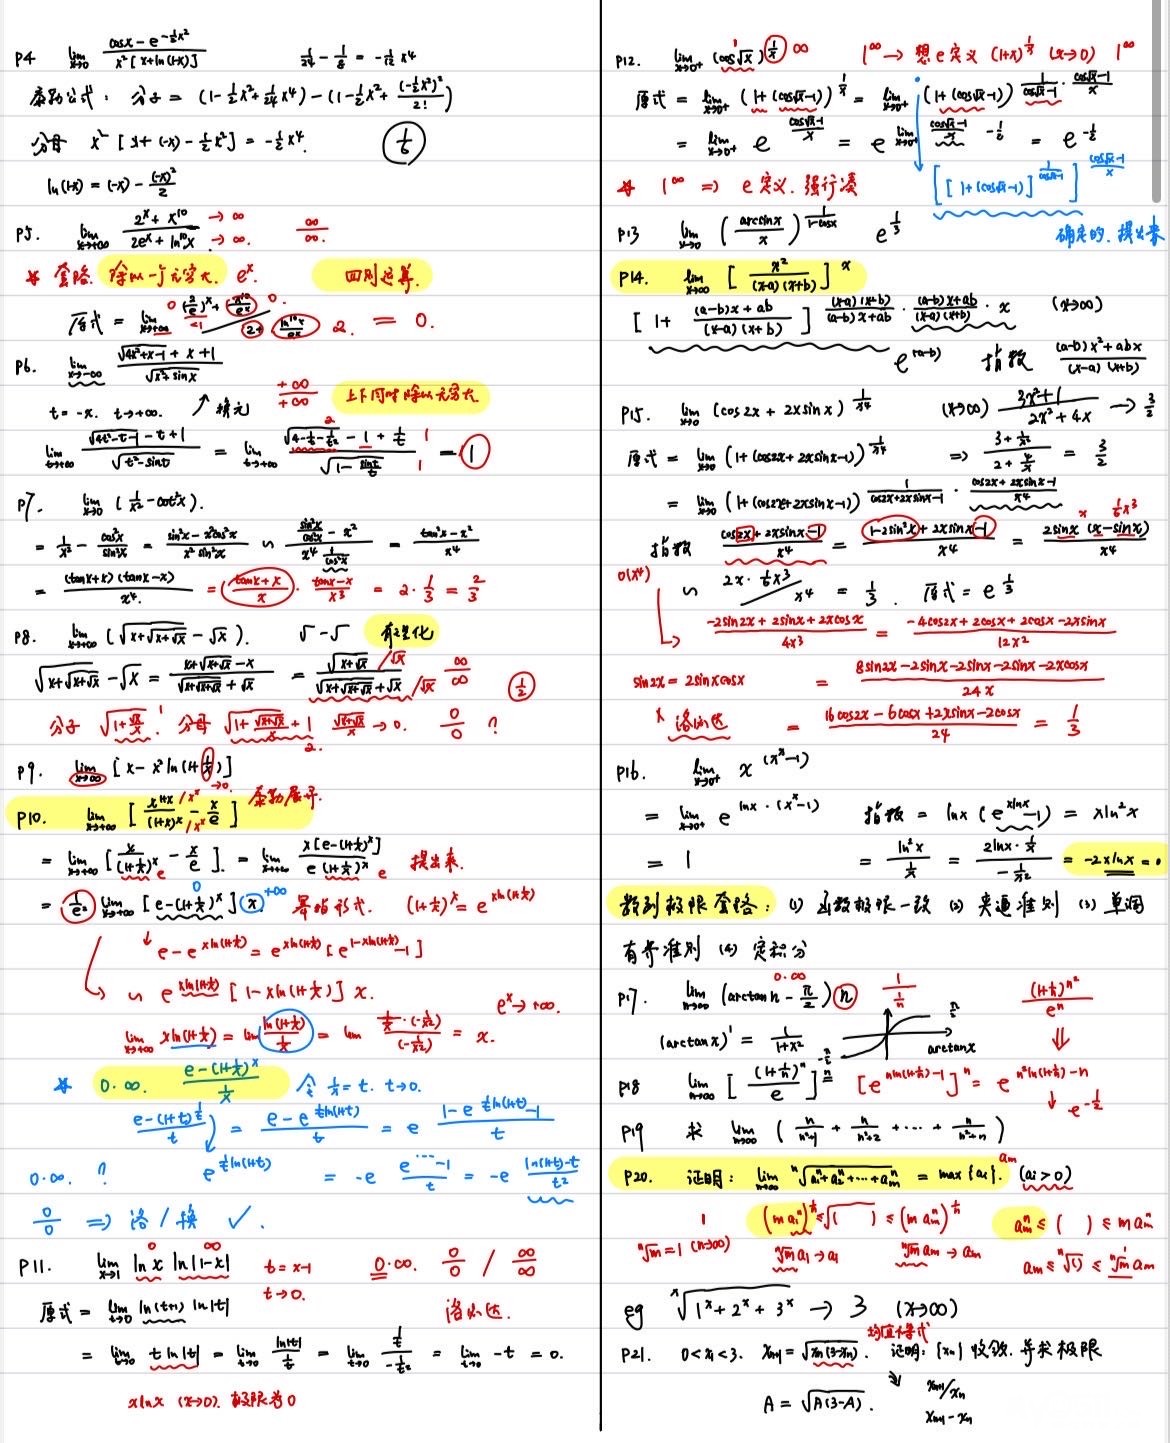 P4 lim_{x→0} (cosx - e^{-½x²}) / (x²[x+ln(1-x)])   1/24 - 1/8 = -1/12 x⁴
泰勒公式: 分子 = (1-½x²+1/24x⁴)-(1-½x²+(-½x²)²/2!)
分母 x²[x+(-x)-½x²] = -½x⁴.   1/6
ln(1-x) = (-x) - (-x)²/2
P5. lim_{x→+∞} (2^x + x^10)/(2e^x + ln^10 x) → ∞ → ∞.   ∞/∞.
* 套路. 除以一个无穷大. e^x.   四则运算.
原式 = lim_{x→+∞}   2.   = 0.
P6. lim_{x→-∞} (√(4x²+x-1) + x + 1)/√(x²+sinx)
+∞/+∞   上下同时除以无穷大
t = -x. t→+∞. ↗ 换元
lim_{t→+∞} (√(4t²-t-1) - t + 1)/√(t²-sint) = lim_{t→+∞} (√(4-1/t-1/t²) - 1 + 1/t)/√(1-sint/t) = 1
P7. lim_{x→0} (1/x² - cot²x).
= 1/x² - cos²x/sin²x = (sin²x - x²cos²x)/(x² sin²x) ∽ (sin²x/cos²x - x²)/(x⁴ 1/cos²x) = (tan²x - x²)/x⁴
= (tanx+x)(tanx-x)/x⁴. = (tanx+x)/x · (tanx-x)/x³ = 2·1/3 = 2/3
P8. lim_{x→+∞} (√(x+√(x+√x)) - √x).   √-√ 有理化
√(x+√(x+√x)) - √x = (x+√(x+√x) - x)/(√(x+√(x+√x)) + √x) = √(x+√x)/(√(x+√(x+√x)) + √x) /√x /√x   ∞/∞   1/2
分子   分母   → 0.   0/0 ?
P9. lim_{x→∞} [x - x² ln(1+1/x)]   →0.
P10. lim_{x→+∞} [x^{1+x}/(1+x)^x - x/e] /x^x /x^x   泰勒展开.
= lim_{x→+∞} [x/(1+1/x)^x - x/e]. = lim_{x→+∞} x[e-(1+1/x)^x]/(e(1+1/x)^x)   e   提出来.
= 1/e² lim_{x→+∞} [e-(1+1/x)^x] x   0   +∞   幂指形式. (1+1/x)^x = e^{xln(1+1/x)}
e - e^{xln(1+1/x)} = e^{xln(1+1/x)} [e^{1-xln(1+1/x)} - 1]
∽ e^{xln(1+1/x)} [1-xln(1+1/x)] x.   e^x → +∞.
lim_{x→+∞} xln(1+1/x) = lim ln(1+1/x)/(1/x) = lim
* 0·∞. (e-(1+1/x)^x)/(1/x)   令 1/x = t. t→0.
(e-(1+t)^{1/t})/t = (e-e^{1/t ln(1+t)})/t = e (1-e^{1/t ln(1+t)-1})/t
0·∞. ?   e^{1/t ln(1+t)}   = -e (e^{···}-1)/t = -e (ln(1+t)-t)/t²
0/0 ⇒ 洛 / 换 ✓.
P11. lim_{x→1} lnx ln|1-x|   0   ∞   t = x-1   t→0.   0·∞. 0/0 / ∞/∞
原式 = lim_{t→0} ln(t+1) ln|t|   洛必达.
= lim_{t→0} t ln|t| = lim_{t→0} ln|t|/(1/t) = lim_{t→0} (1/t)/(-1/t²) = lim_{t→0} -t = 0.
xlnx (x→0). 极限为0
P12. lim_{x→0⁺} (cos√x)^{1/x}   1   ∞   1^∞ → 想e定义 (1+x)^{1/x} (x→0) 1^∞
原式 = lim_{x→0⁺} (1+(cos√x-1))^{1/x} = lim_{x→0⁺} (1+(cos√x-1))^{1/(cos√x-1) · (cos√x-1)/x}
= lim_{x→0⁺} e^{(cos√x-1)/x} = e^{lim_{x→0⁺} (cos√x-1)/x} = e^{-½}
* 1^∞ ⇒ e定义. 强行凑   [[1+(cos√x-1)]^{1/(cos√x-1)}]^{(cos√x-1)/x}
确定的. 提出来
P13 lim_{x→0} (arcsinx/x)^{1/(1-cosx)}   e^{1/3}
P14. lim_{x→∞} [x²/((x-a)(x+b))]^x
[1+((a-b)x+ab)/((x-a)(x+b))]^{(x-a)(x+b)/((a-b)x+ab) · ((a-b)x+ab)/((x-a)(x+b)) · x}   (x→∞)
e^{(a-b)}   指数 ((a-b)x²+abx)/((x-a)(x+b))
P15. lim_{x→0} (cos2x + 2xsinx)^{1/x⁴}   (x→∞) (3x²+1)/(2x²+4x) → 3/2
原式 = lim_{x→0} (1+(cos2x+2xsinx-1))^{1/x⁴}   ⇒ (3+1/x²)/(2+4/x) = 3/2
= lim_{x→0} (1+(cos2x+2xsinx-1))^{1/(cos2x+2xsinx-1) · (cos2x+2xsinx-1)/x⁴}
指数 (cos2x+2xsinx-1)/x⁴ = (1-2sin²x+2xsinx-1)/x⁴ = 2sinx(x-sinx)/x⁴   x   1/6x³
o(x⁴)   ∽ 2x·1/6x³/x⁴ = 1/3. 原式 = e^{1/3}
(-2sin2x+2sinx+2xcosx)/4x³ = (-4cos2x+2cosx+2cosx-2xsinx)/12x²
sin2x = 2sinxcosx   = (8sin2x-2sinx-2sinx-2sinx-2xcosx)/24x
x 洛必达   = (16cos2x-6cosx+2xsinx-2cosx)/24 = 1/3
P16. lim_{x→0⁺} x^{(x^x-1)}
= lim_{x→0⁺} e^{lnx·(x^x-1)}   指数 = lnx(e^{xlnx}-1) = xln²x
= 1   = ln²x/(1/x) = (2lnx·1/x)/(-1/x²) = -2xlnx = 0
数列极限套路: (1) 函数极限一致 (2) 夹逼准则 (3) 单调
有界准则 (4) 定积分
P17. lim_{n→∞} (arctan n - π/2) n   0·∞   1/(1/n)   (1+1/n)^{n²}/e^n
(arctanx)' = 1/(1+x²)   π/2   -π/2   arctanx   ⇓
P18 lim_{n→∞} [(1+1/n)^n/e]^n = [e^{nln(1+1/n)-1}]^n = e^{n²ln(1+1/n)-n}
↓ e^{-½}
P19 求 lim_{n→∞} (n/(n²+1) + n/(n²+2) + ··· + n/(n²+n))
P20. 证明: lim_{n→∞} ⁿ√(a₁ⁿ+a₂ⁿ+···+a_mⁿ) = max{aᵢ}. (aᵢ>0)   a_m
1   (m a₁ⁿ)^{1/n} ≤ √( ) ≤ (m a_mⁿ)^{1/n}   a_mⁿ ≤ ( ) ≤ m a_mⁿ
ⁿ√m = 1 (n→∞)   ⁿ√m a₁ → a₁   ⁿ√m a_m → a_m   a_m ≤ ⁿ√() ≤ ⁿ√m a_m
eg ˣ√(1^x + 2^x + 3^x) → 3 (x→∞)
均值不等式
P21. 0<x₁<3. x_{n+1} = √(x_n(3-x_n)). 证明: {x_n} 收敛. 并求极限
A = √(A(3-A)).   x_{n+1}/x_n
x_{n+1} - x_n